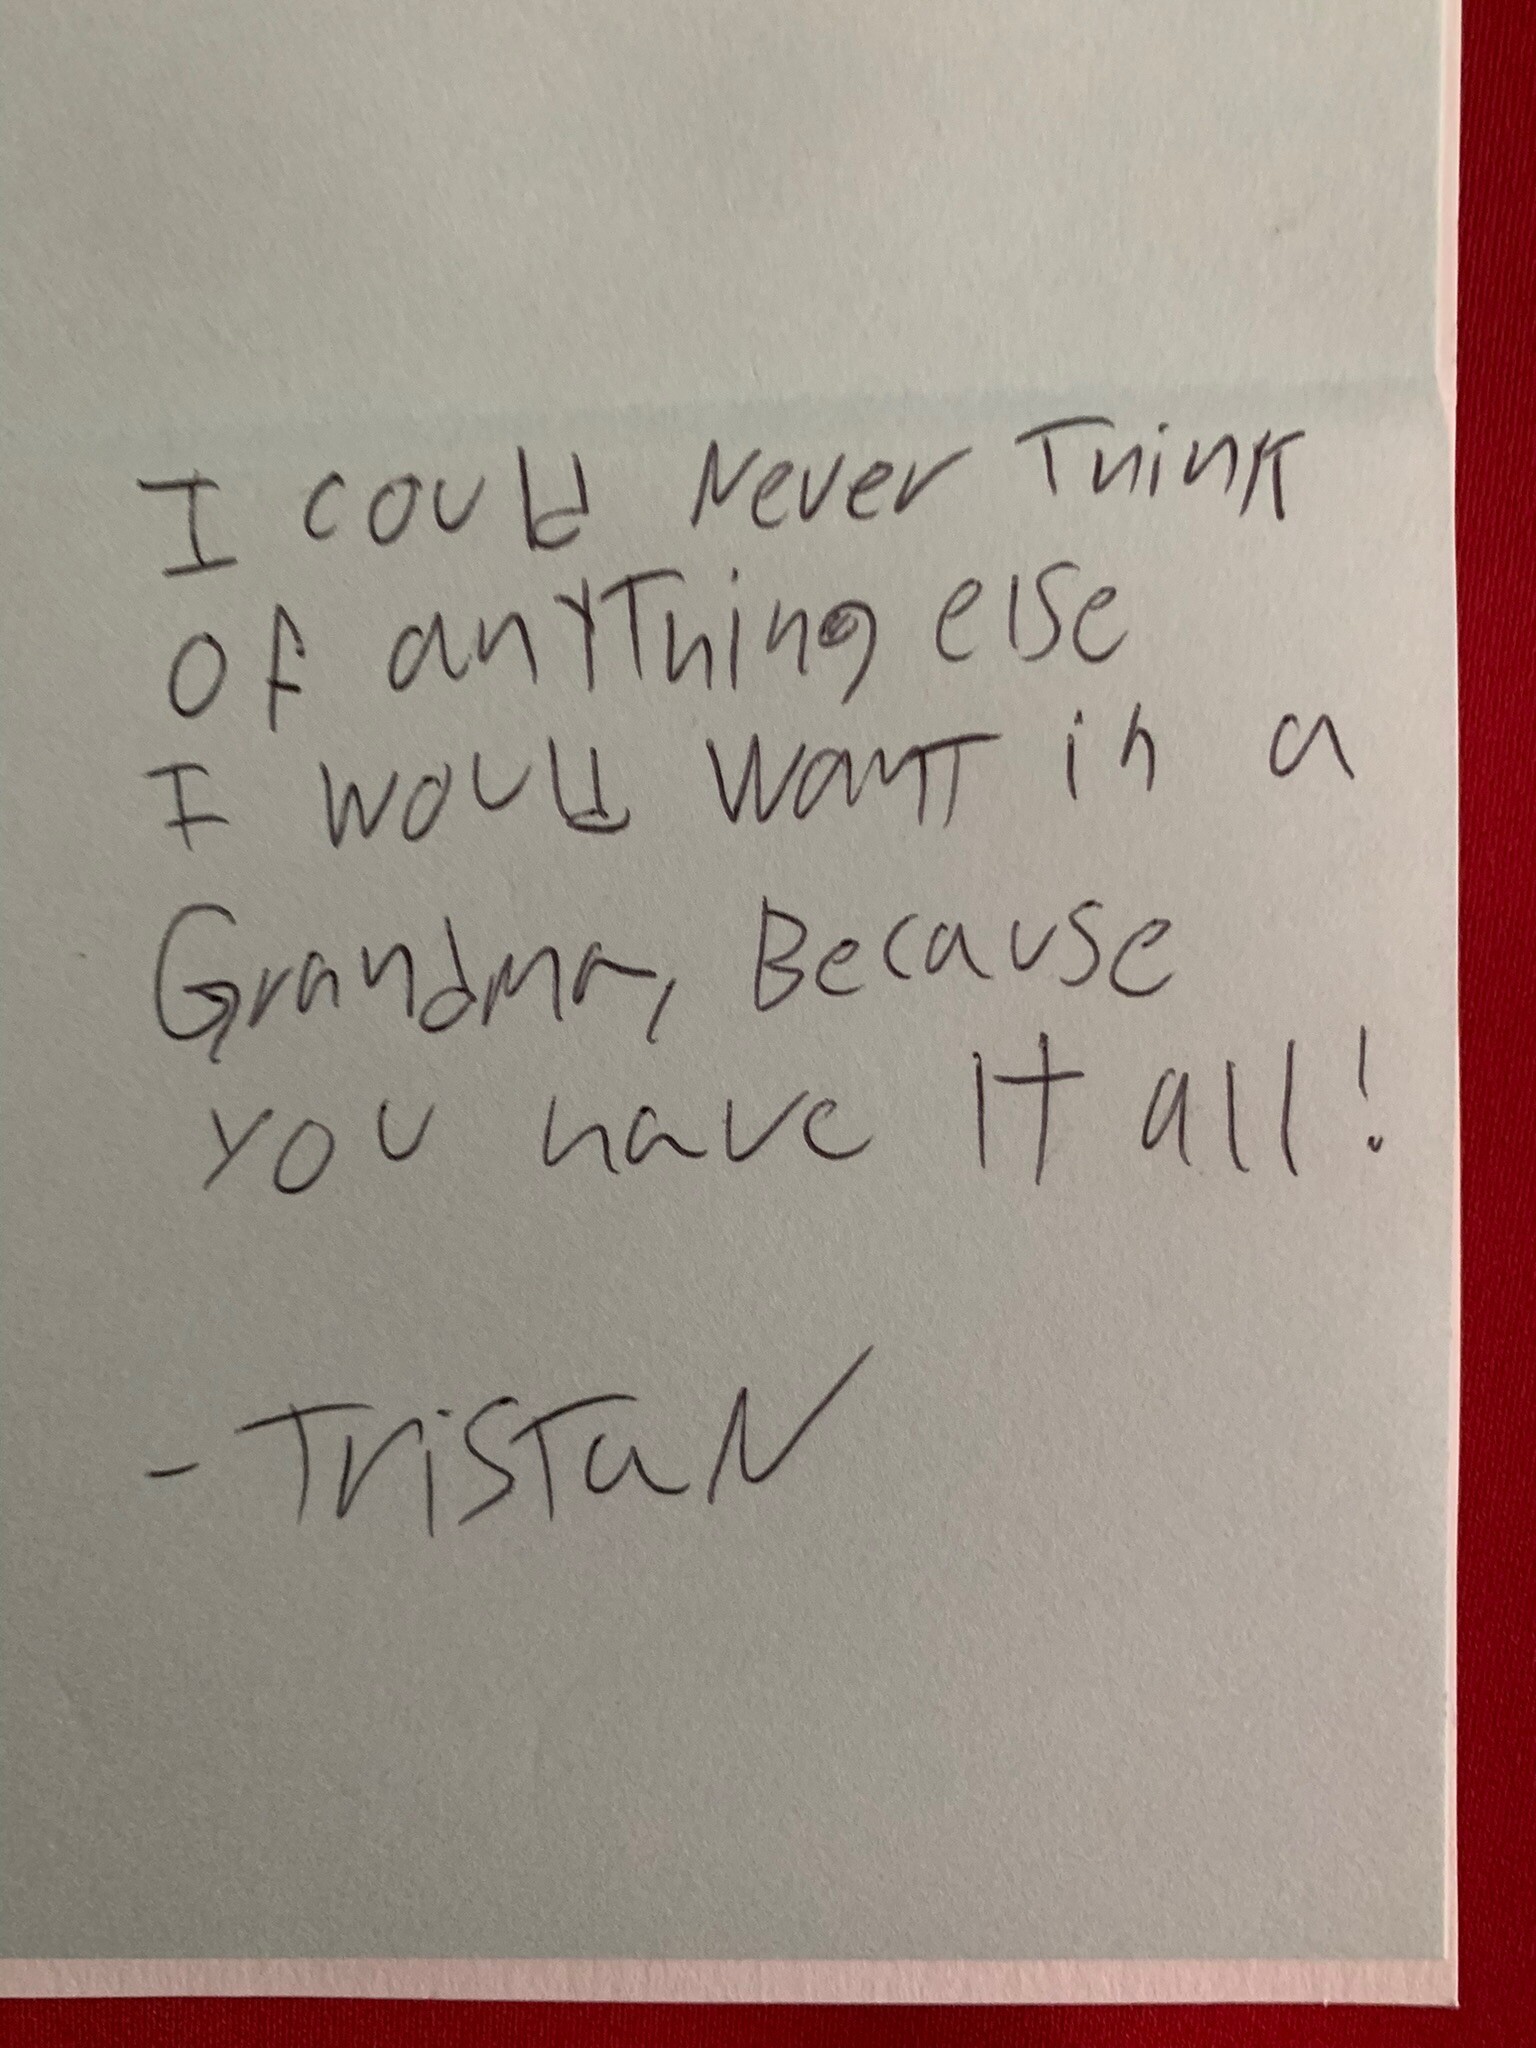 I could Never Think
of anyThing else
I would wanT in a
Grandma, Because
you have It all!
- TrisTaN